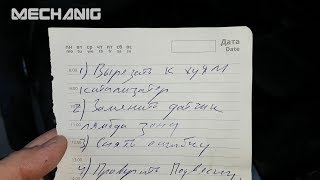 MECHANIG
ПН ВТ СР ЧТ ПТ СБ ВС
Дата
Date
8:00 1) Вырезать к хуям
катализатор
2) Заменить датчик
лямбда зонд
3) Снять ошибку
4) Проверить Подвеску